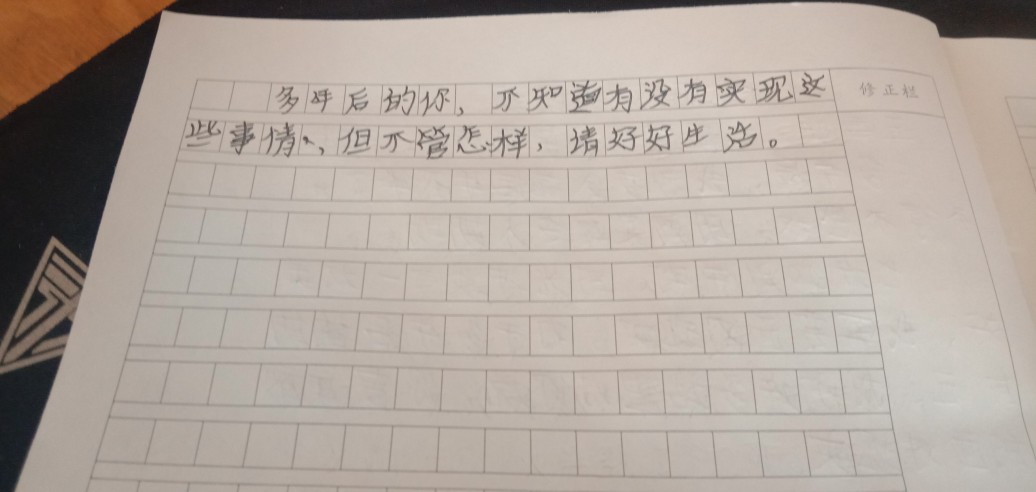 多年后的你，不知道有没有实现这
些事情，但不管怎样，请好好生活。
修正栏